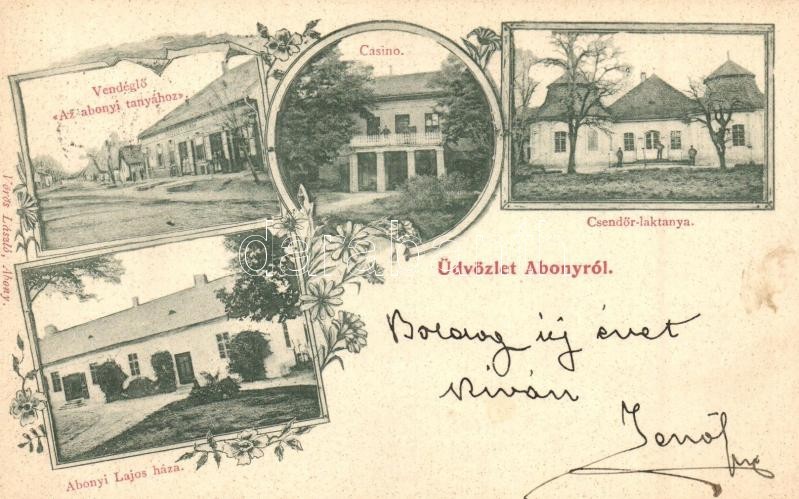 Vendéglő
«Az abonyi tanyához».
Casino.
Csendőr-laktanya.
Üdvözlet Abonyról.
Vörös László, Abony.
Boldog új évet
kiván
Jenő
Abonyi Lajos háza.